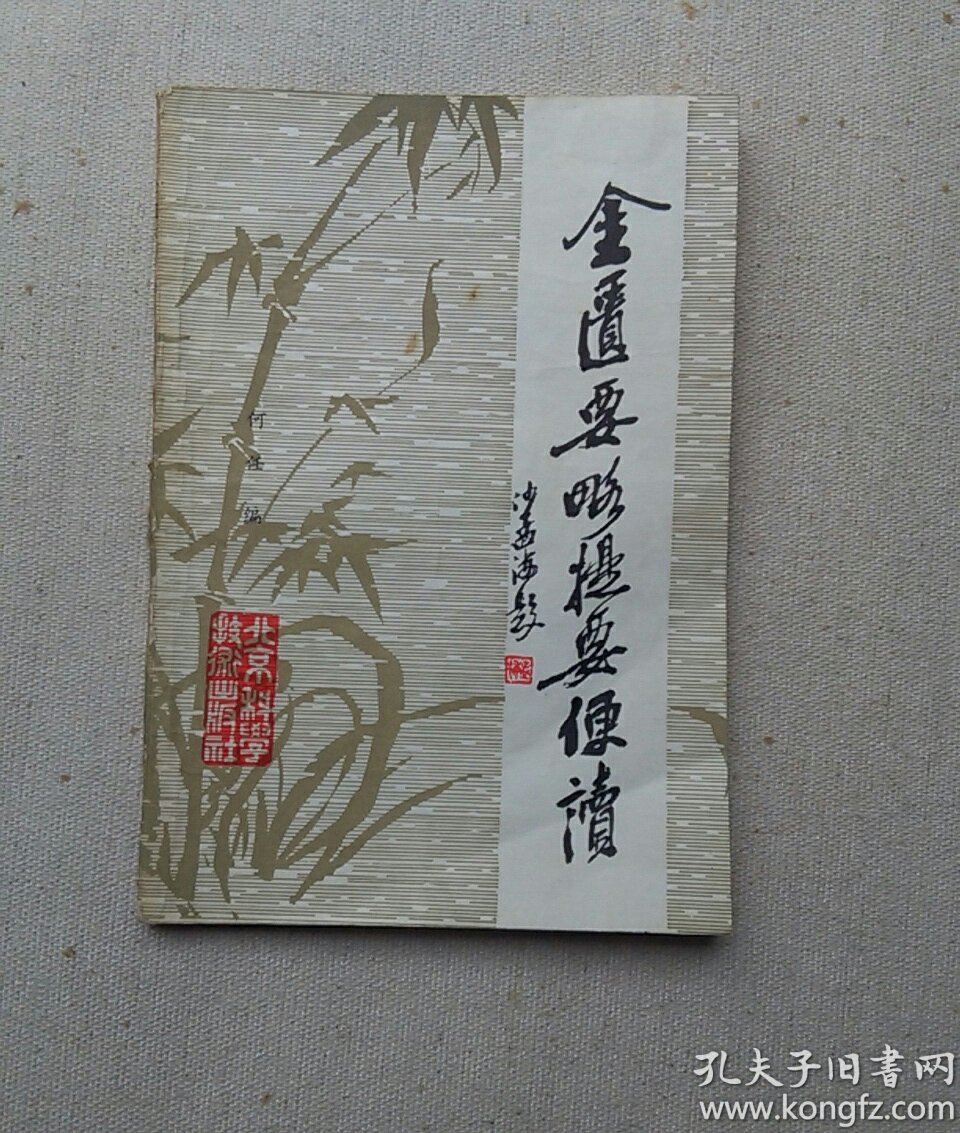 金匱要略提要便讀
沙孟海題
何任编
北京科學
技術出版社
孔夫子旧書网
www.kongfz.com